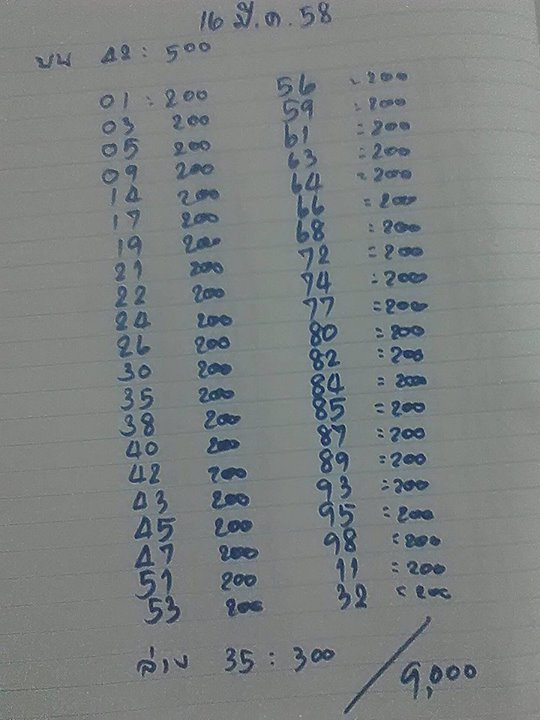 16 มี.ค. 58
บน 42 : 500
01 : 200 56 = 200
03 200 59 = 200
05 200 61 = 200
09 200 63 = 200
14 200 64 = 200
17 200 66 = 200
19 200 68 = 200
21 200 72 = 200
22 200 74 = 200
24 200 77 = 200
26 200 80 = 200
30 200 82 = 200
35 200 84 = 200
38 200 85 = 200
40 200 87 = 200
42 200 89 = 200
43 200 93 = 200
45 200 95 = 200
47 200 98 = 200
51 200 11 = 200
53 200 32 = 200
ล่าง 35 : 300
9,000